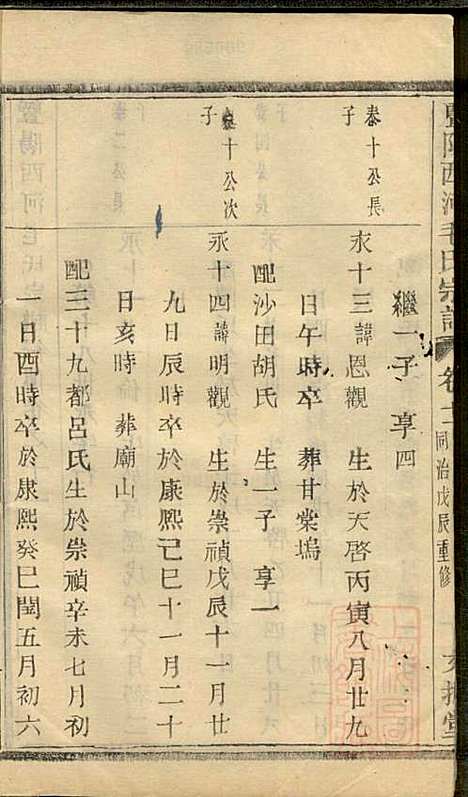 暨陽西河毛氏宗譜
卷二
同治戊辰重修
繼一子享四
泰十公長子
永十三諱恩觀 生於天啓丙寅八月廿九
日午時卒 葬甘棠塢
配沙田胡氏 生一子 享一
泰十公次子
永十四諱明觀 生於崇禎戊辰十一月廿
九日辰時卒於康熙己巳十一月二十
日亥時葬廟山
配三十九都呂氏生於崇禎辛未七月初
一日酉時卒於康熙癸巳閏五月初六